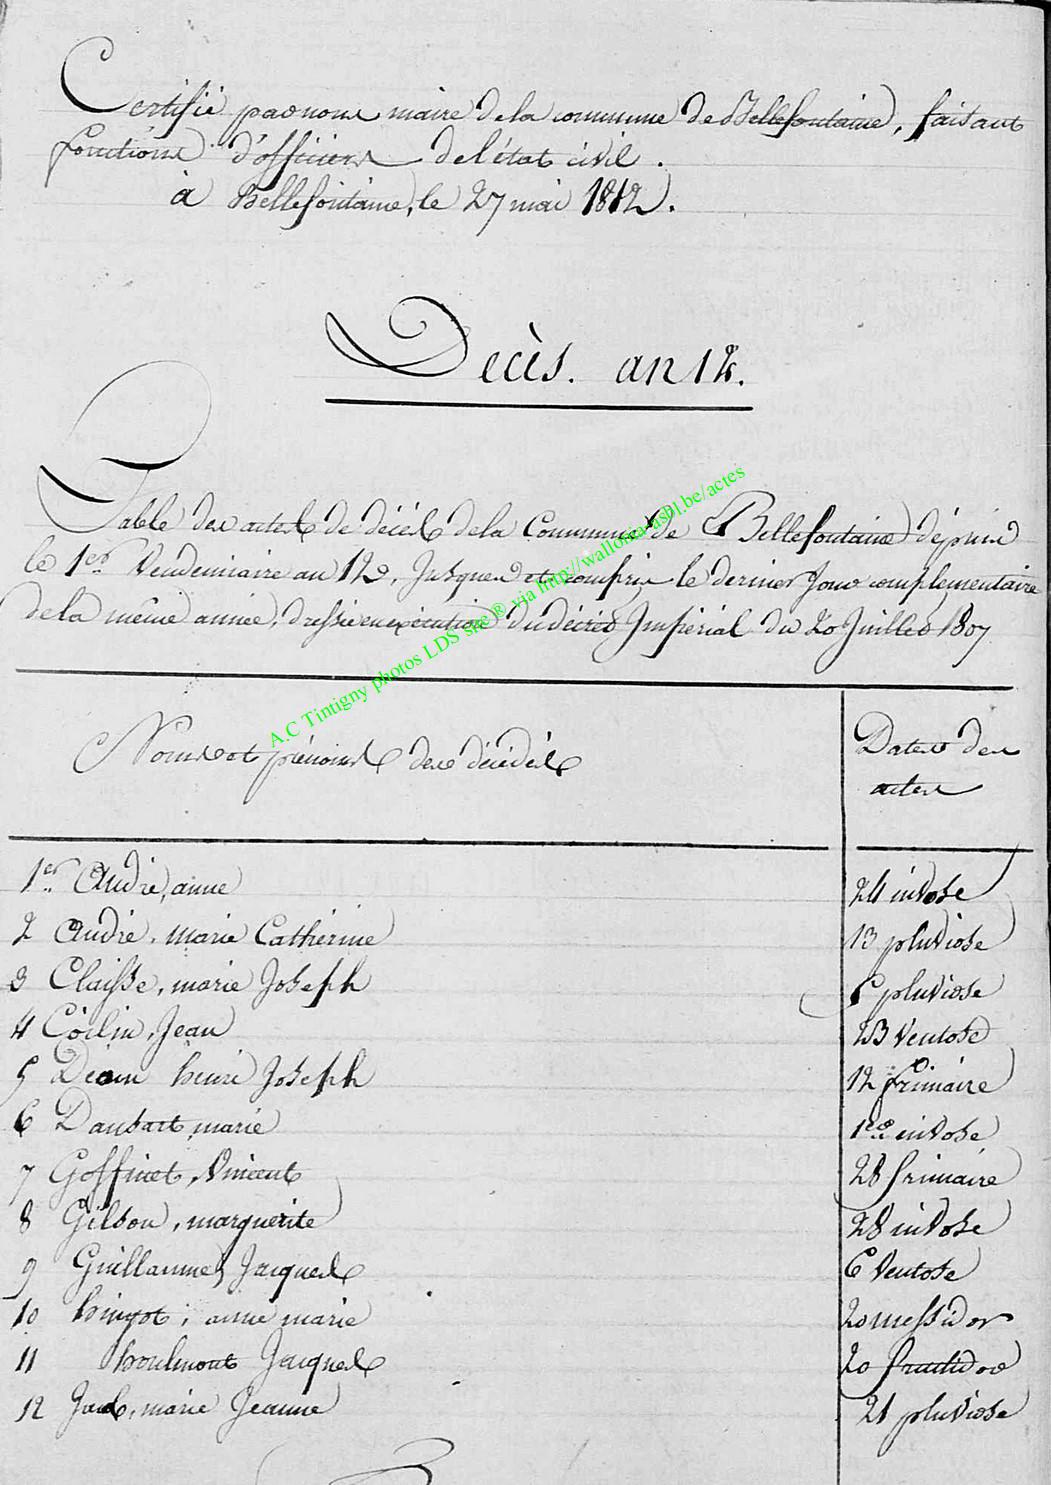 Certifié par nous maire de la commune de Bellefontaine, faisant
fonctions d'officier de l'état civil.
à Bellefontaine, le 27 mai 1812.
Decès. an 12.
Table des actes de décès de la Commune de Bellefontaine depuis
le 1er Vendemiaire an 12, Jusques et compris le dernier Jour complementaire
de la même année, dressée en exécution du décret Impérial du 20 Juillet 1807
A.C Tintigny photos LDS site® via http://wallonia-asbl.be/actes
Noms et prénoms des décédés
Dates des
actes
1er André, anne 24 nivose
2 André, marie Catherine 13 pluviose
3 Claisse, marie Joseph pluviose
4 Jean 23 Ventose
5 henri Joseph 12 frimaire
6 marie 1er nivose
7 Goffinet, Vincent 28 frimaire
8 Gilson, marguerite 28 nivose
9 Guillaume, Jacques 6 Ventose
10 anne marie 20 messidor
11 houlmont Jacques 20 fructidor
12 marie Jeanne 21 pluviose